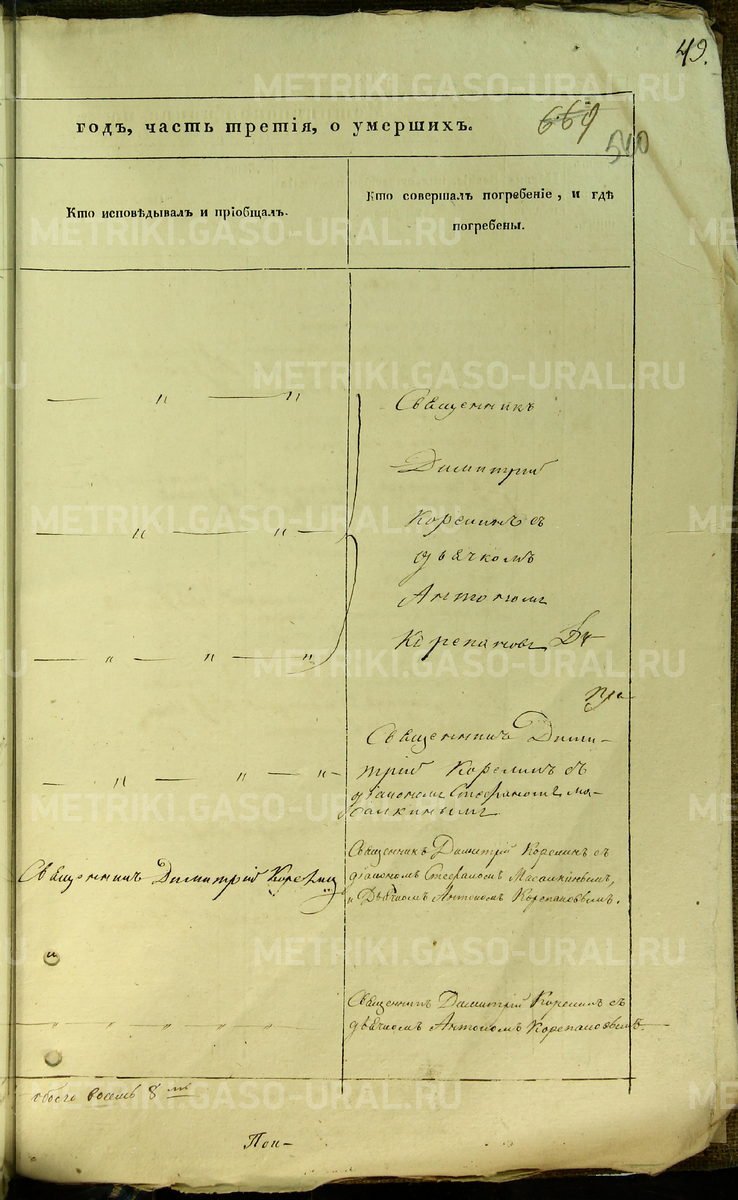 49.
годъ, часть третія, о умершихъ.
669
500
Кто исповѣдывалъ и пріобщалъ.
Кто совершалъ погребеніе, и гдѣ
погребены.
— " — "
Священникъ
Димитрій
— " — " —
Корелинъ съ
дьячкомъ
Антономъ
— " — " — "
Корепановъ
Священникъ Дими-
— " — " — " -
трій Корелинъ съ
діакономъ Стефаномъ Ма-
салкинымъ
Священникъ Димитрій Корелинъ
Священникъ Димитрій Корелинъ съ
діакономъ Стефаномъ Масалкинымъ,
и Дьячкомъ Антономъ Корепановымъ.
Священникъ Димитрій Корелинъ съ
" " " " "
дьячкомъ Антономъ Корепановымъ.
обоего восемь 8
Пон-
METRIKI.GASO-URAL.RU